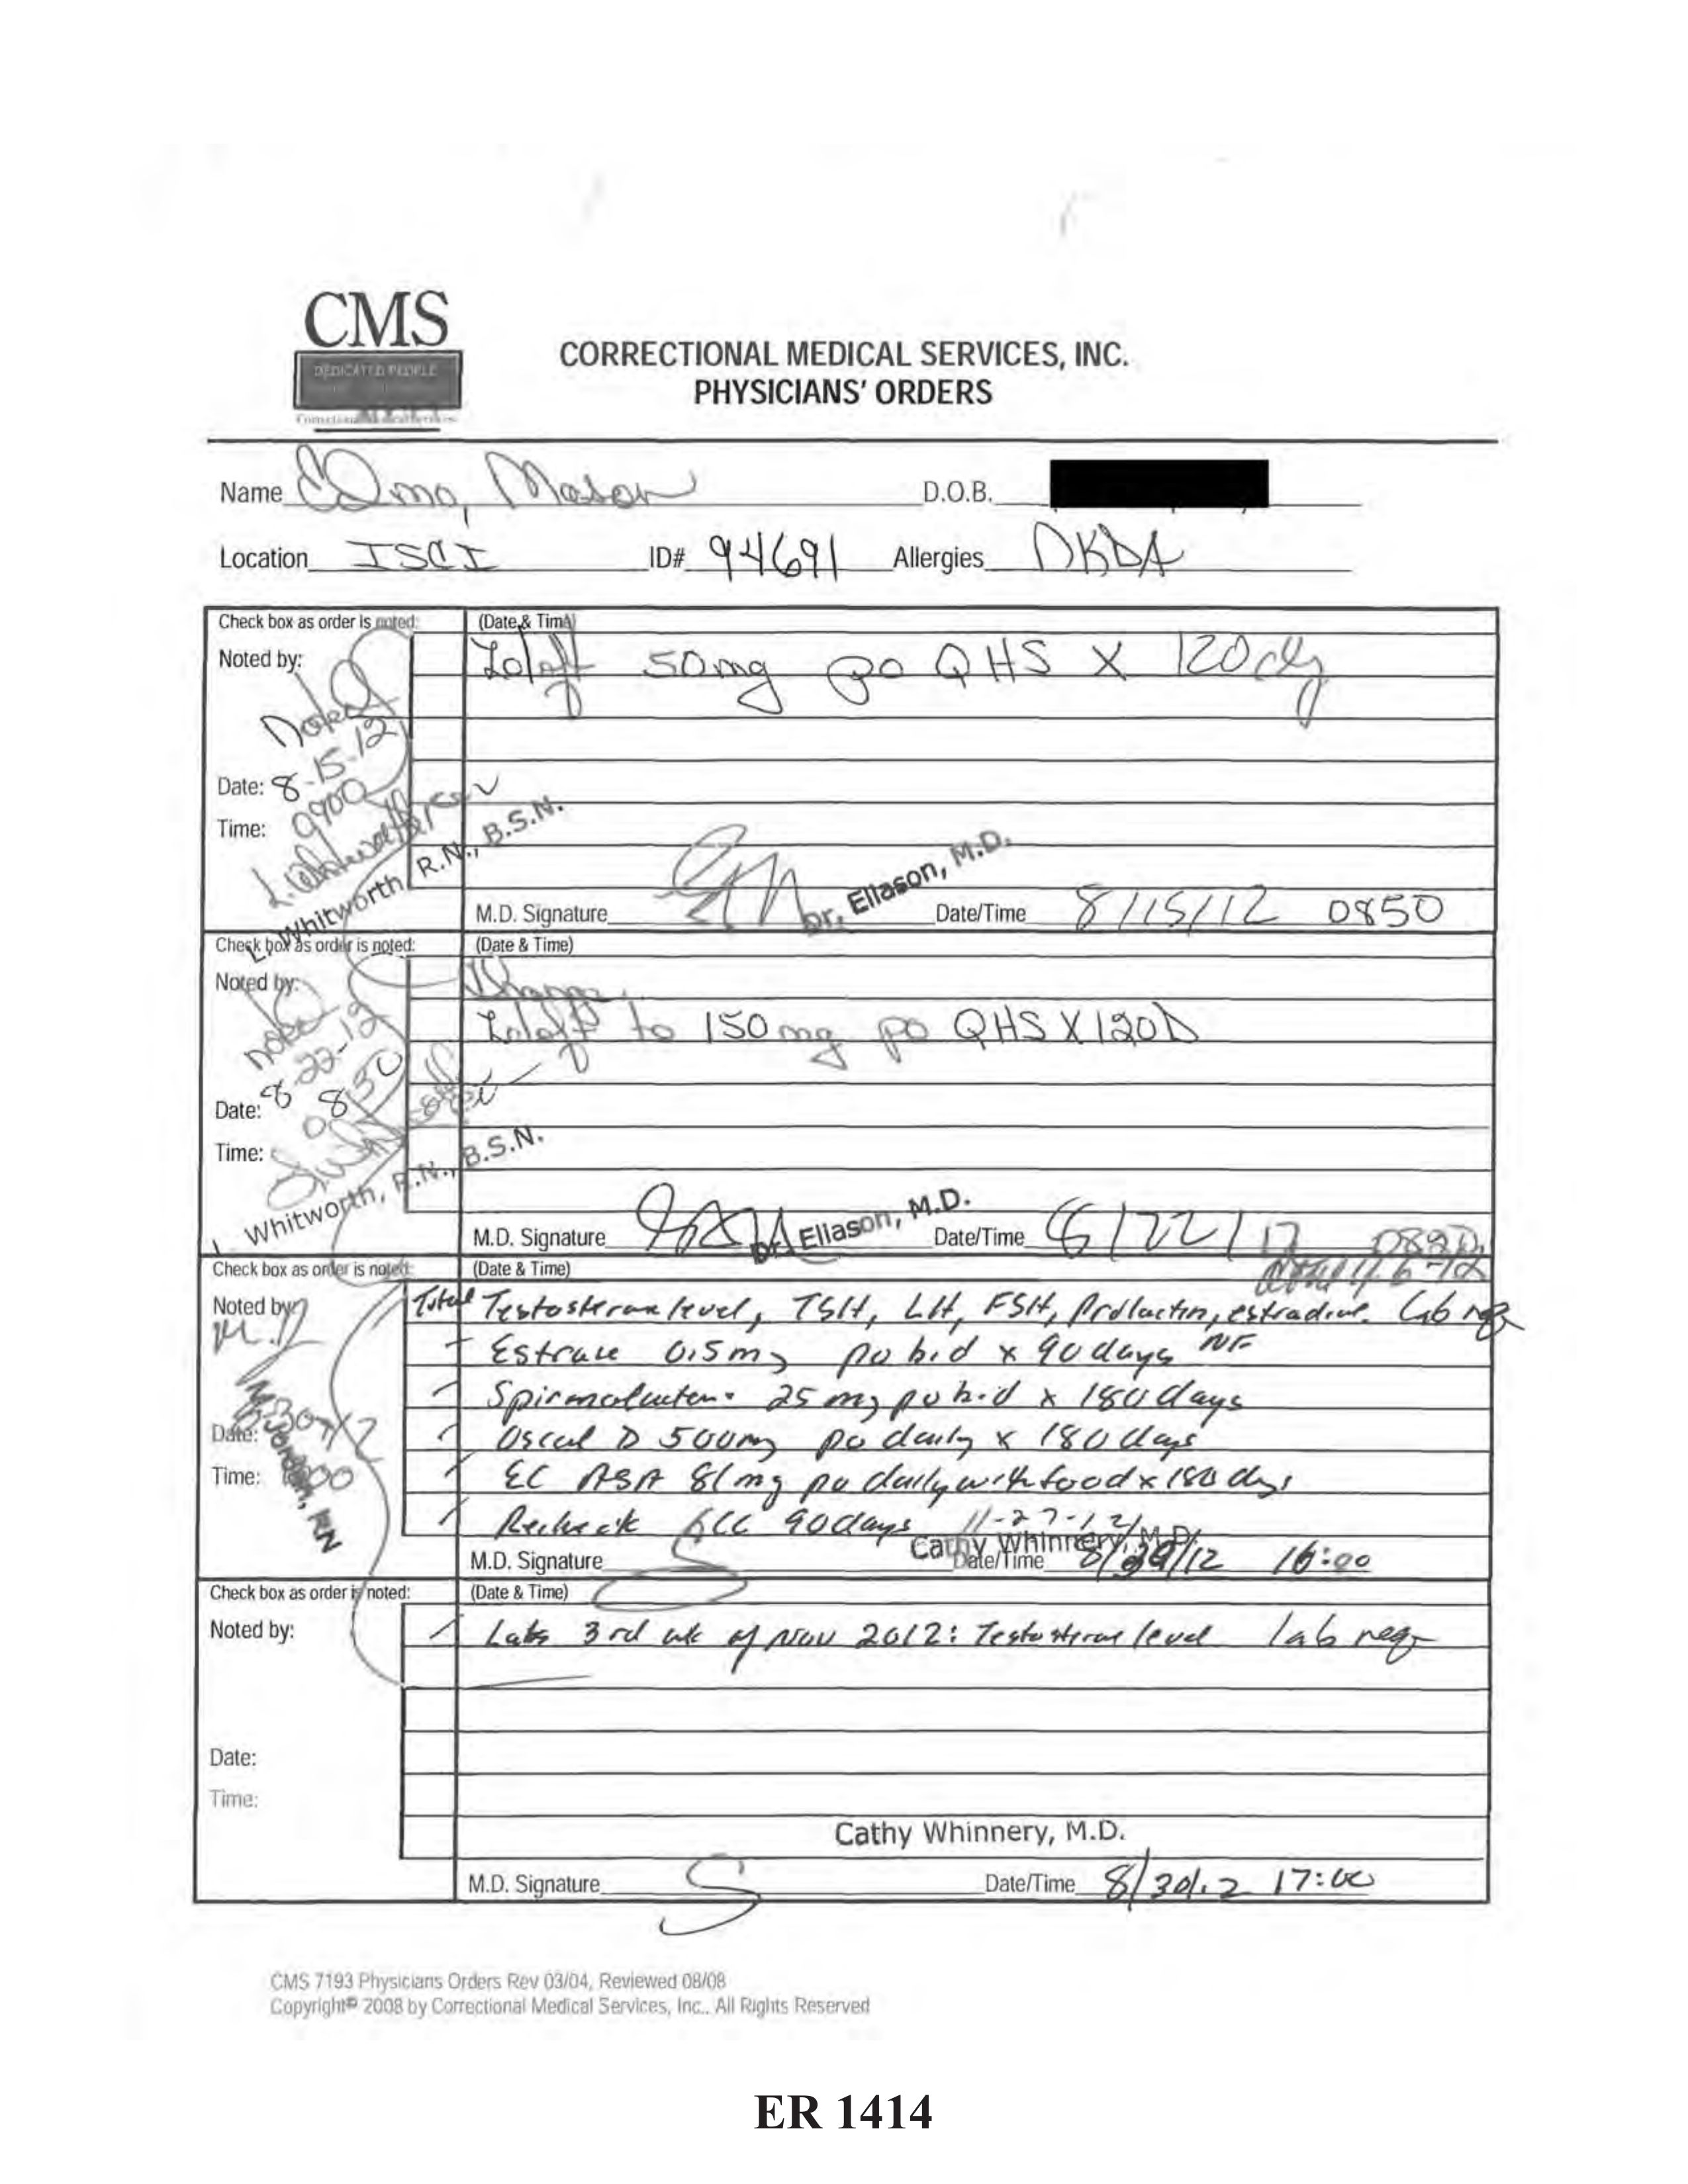 CMS
DEDICATED PEOPLE
CORRECTIONAL MEDICAL SERVICES, INC.
PHYSICIANS' ORDERS
Name Edmo, Mason D.O.B.
Location ISCI ID# 94691 Allergies NKDA
Check box as order is noted: (Date & Time)
Noted by: Zoloft 50mg po QHS X 120 dy
Noted
Date: 8-15-12
Time: 0900
L. Whitworth, R.N., B.S.N.
M.D. Signature Dr. Eliason, M.D. Date/Time 8/15/12 0850
Check box as order is noted: (Date & Time)
Noted by: Change
Zoloft to 150mg po QHS X 120D
Noted
Date: 8-22-12
Time: 0830
L. Whitworth, R.N., B.S.N.
M.D. Signature Dr. Eliason, M.D. Date/Time 8/22/12
Check box as order is noted: (Date & Time)
Noted by: Total Testosterone level, TSH, LH, FSH, Prolactin, estradiol. Lab req
Estrace 0.5mg po bid x 90 days NF
Spironolactone 25 mg po bid x 180 days
Date: Oscal D 500mg po daily x 180 days
Time: EC ASA 81mg po daily with food x 180 days
Recheck 90 days 11-27-12
M.D. Signature Cathy Whinnery, M.D. Date/Time 16:00
Check box as order is noted: (Date & Time)
Noted by: Labs 3rd wk of Nov 2012: Testosterone level lab req
Date:
Time:
Cathy Whinnery, M.D.
M.D. Signature Date/Time 8/30/12 17:00
CMS 7193 Physicians Orders Rev 03/04, Reviewed 08/08
Copyright© 2008 by Correctional Medical Services, Inc.. All Rights Reserved
ER 1414